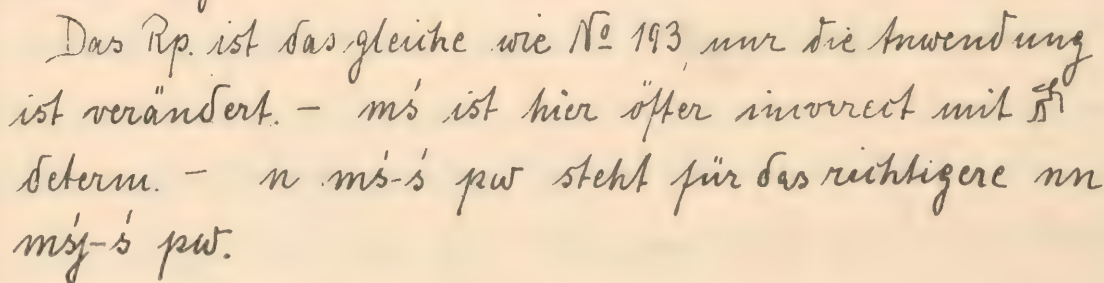 Das Rp. ist das gleiche wie No 193 nur die Anwendung
ist verändert. – mś ist hier öfter incorrect mit 𓁒
determ. – n mś-ś pw steht für das richtigere nn
mśj-ś pw.